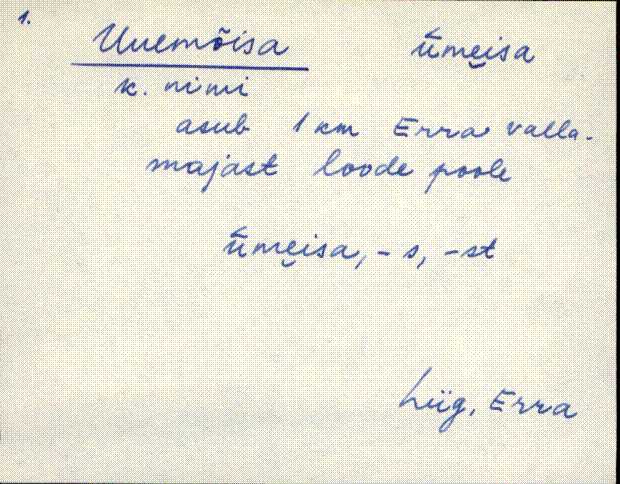 1.
Uuemõisa ǖme̮isa
k. nimi
asub 1 km Erra valla-
majast loode poole
ǖme̮isa, -s, -st
Lüg, Erra